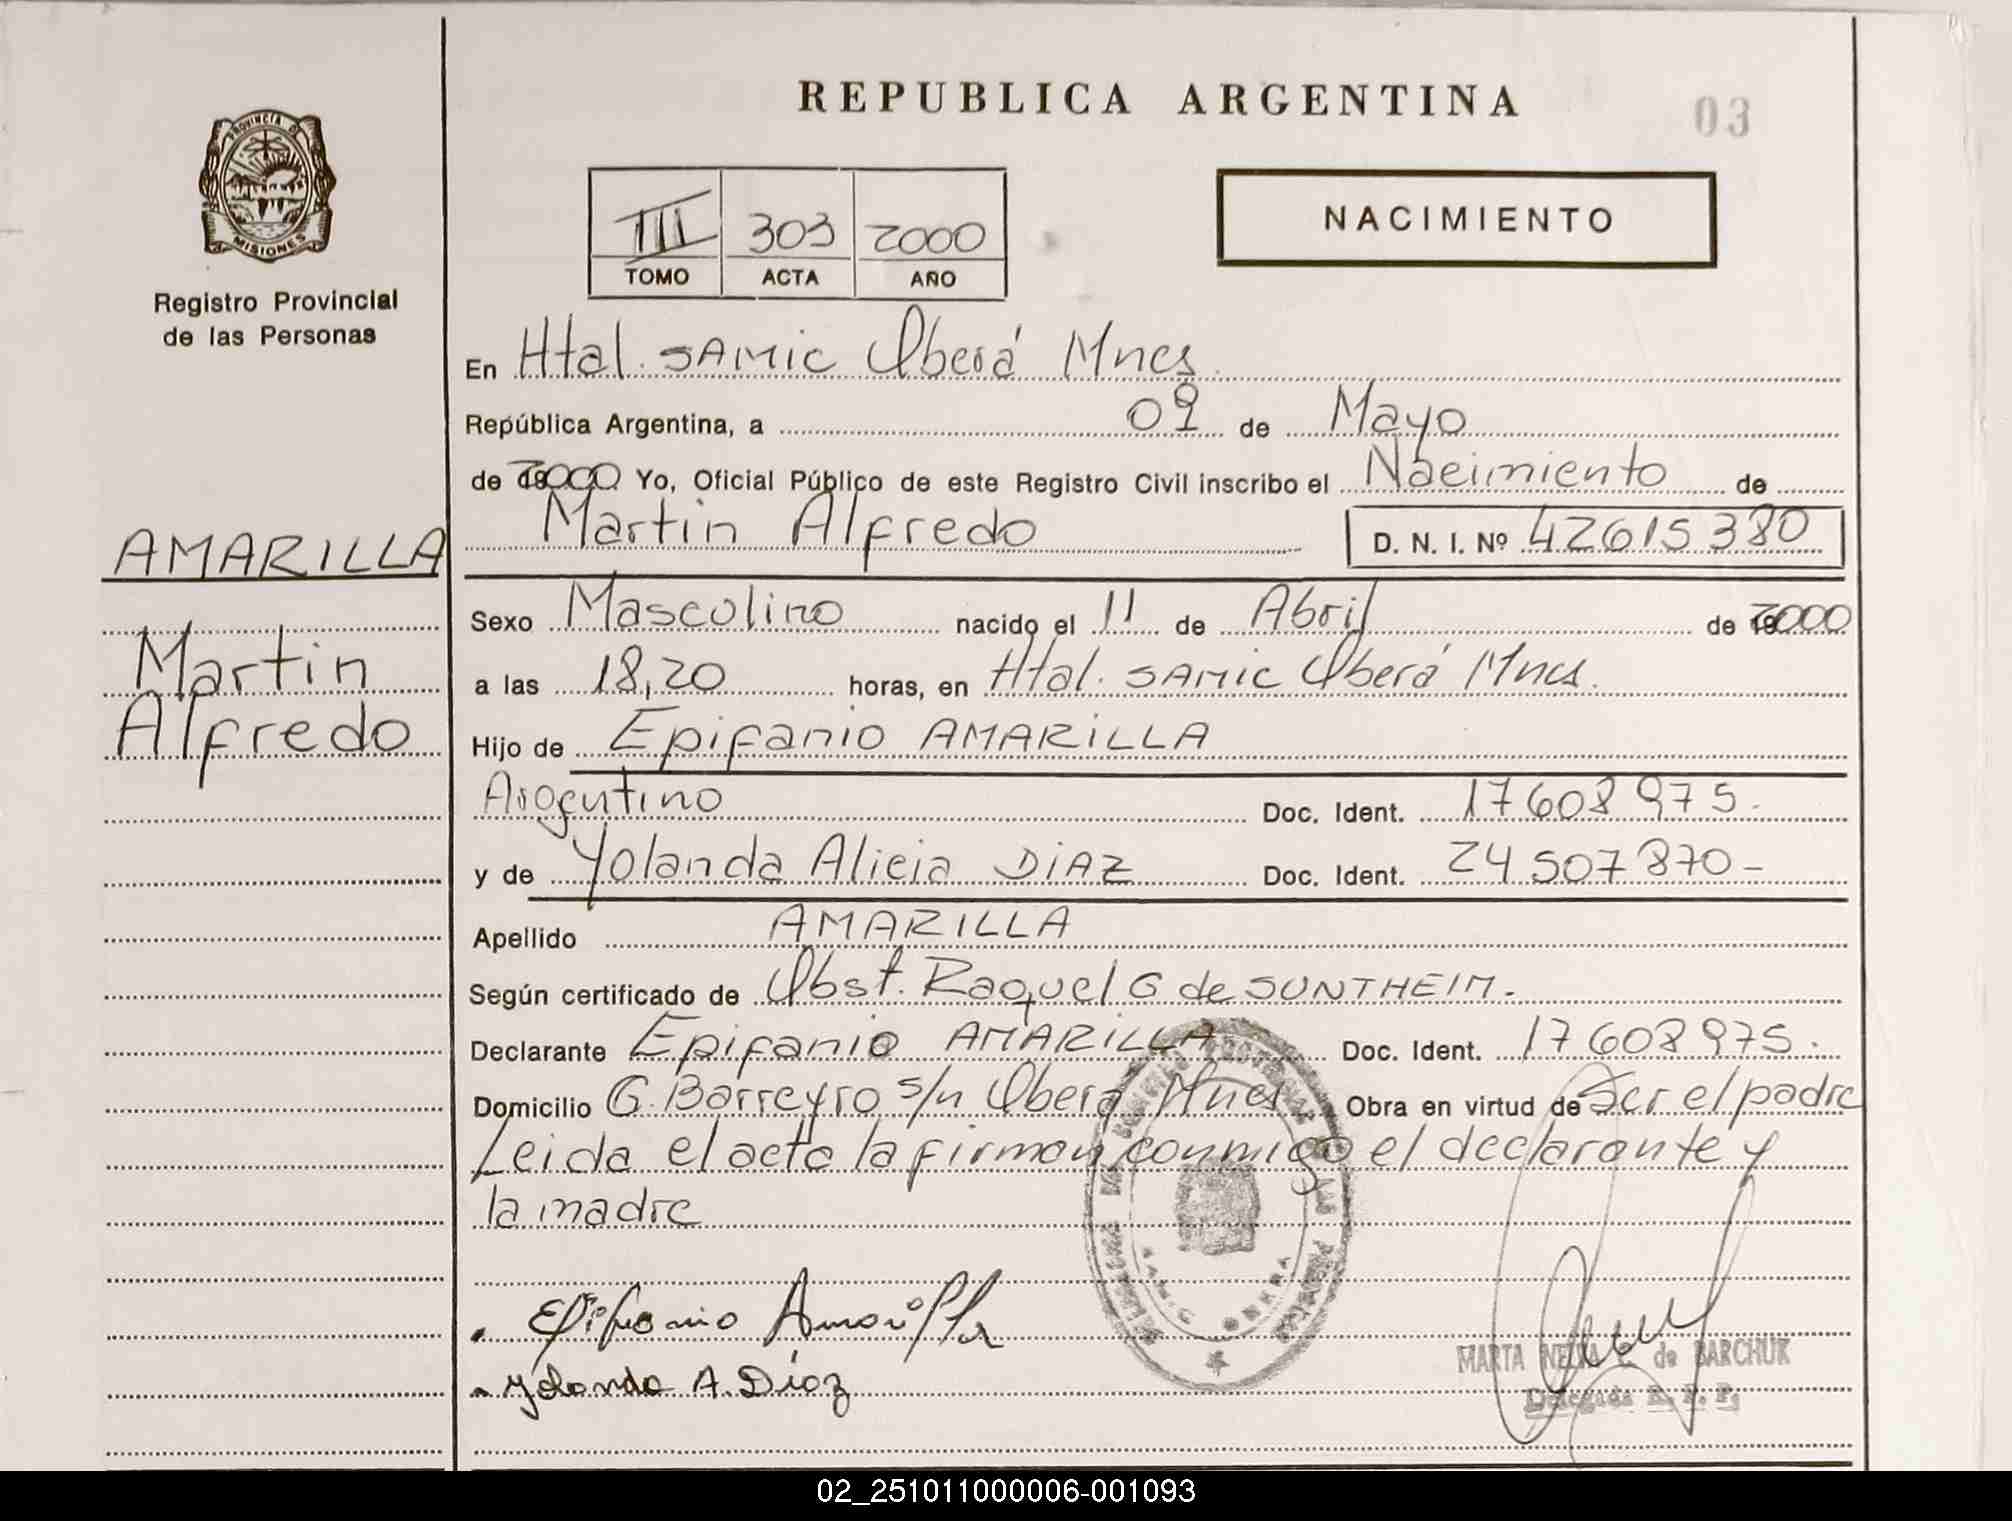 REPUBLICA ARGENTINA
03
PROVINCIA DE
MISIONES
Registro Provincial
de las Personas
III 303 2000
TOMO ACTA AÑO
NACIMIENTO
En Htal. SAMIC Oberá Mnes.
República Argentina, a 09 de Mayo
de 2000 Yo, Oficial Público de este Registro Civil inscribo el Nacimiento de
Martin Alfredo D. N. I. Nº 42615380
AMARILLA
Martin
Alfredo
Sexo Masculino nacido el 11 de Abril de 2000
a las 18,20 horas, en Htal. SAMIC Oberá Mnes.
Hijo de Epifanio AMARILLA
Argentino Doc. Ident. 17608975.
y de Yolanda Alicia DIAZ Doc. Ident. 24507870-
Apellido AMARILLA
Según certificado de Obst. Raquel G de SUNTHEIM.
Declarante Epifanio AMARILLA Doc. Ident. 17608975.
Domicilio G. Barreyro s/n Oberá Mnes Obra en virtud de Ser el padre
Leida el acta la firman conmigo el declarante y
la madre
Epifanio Amarilla
Yolanda A. Díaz
MARTA de BARCHUK
Delegada R. P. P.
02_251011000006-001093